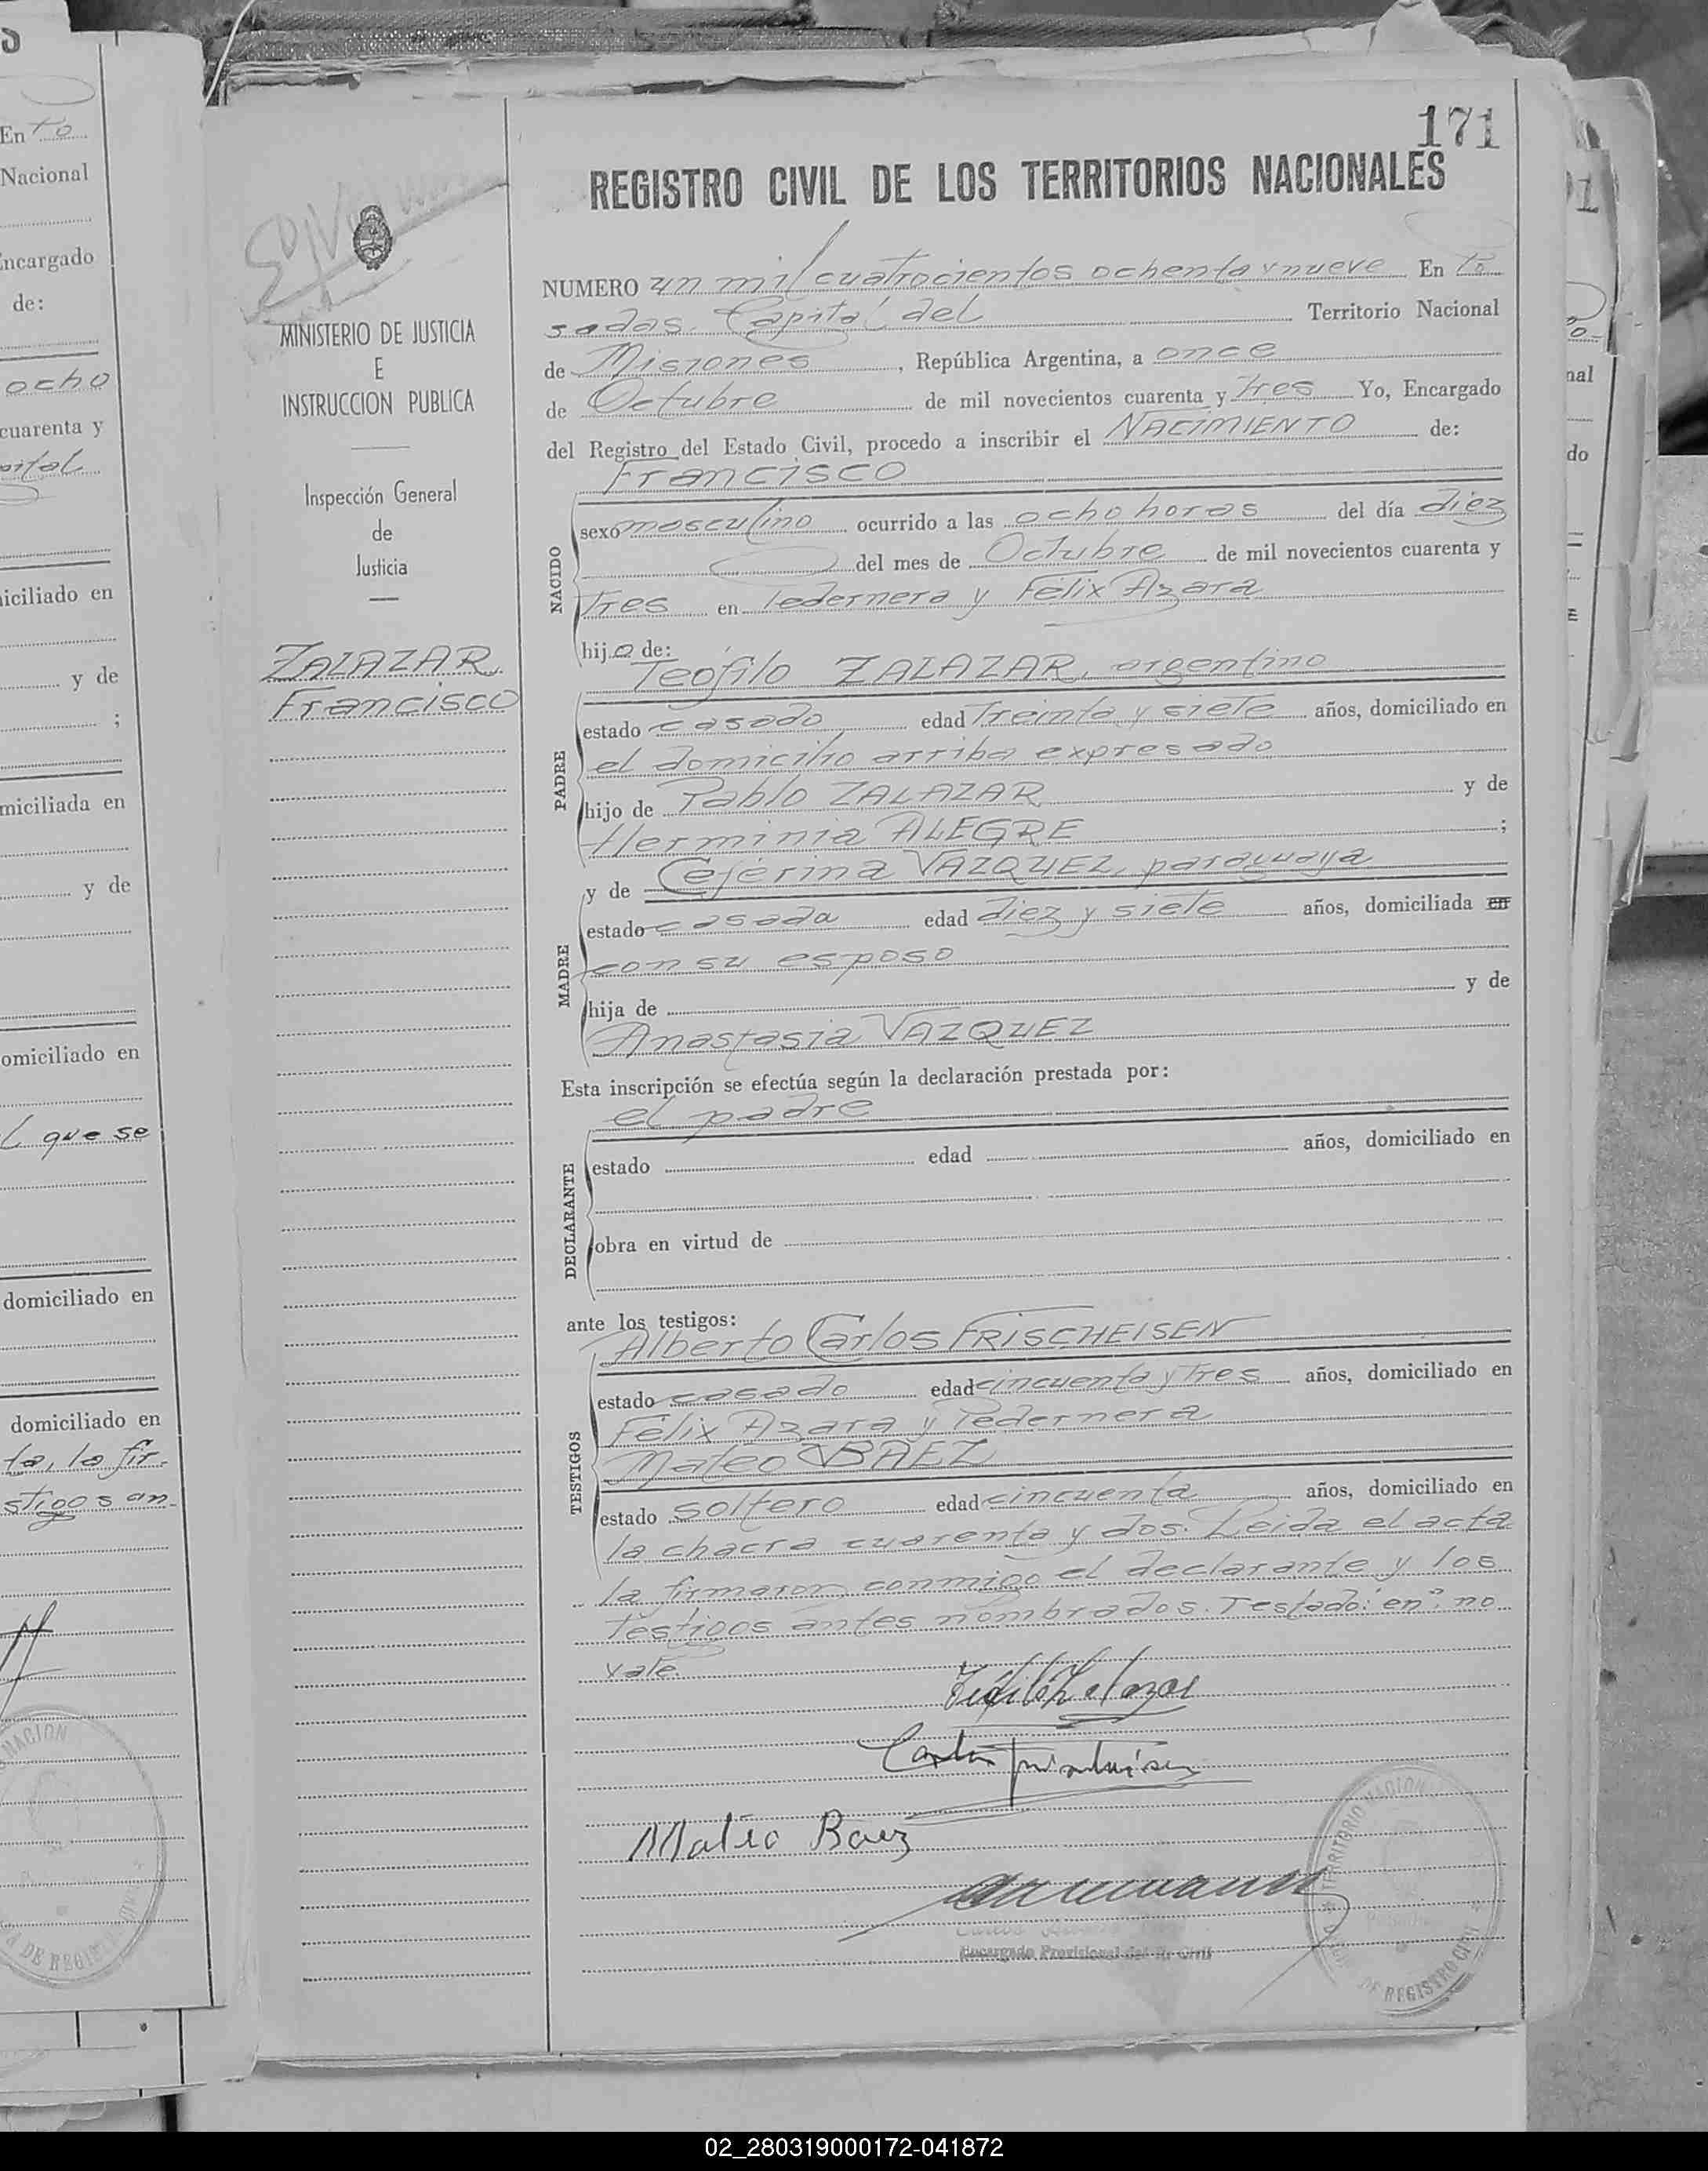 S
En to
Nacional
Encargado
de:
ocho
cuarenta y
pital
iciliado en
y de
;
miciliada en
y de
omiciliado en
l que se
domiciliado en
domiciliado en
ta, la fir-
stigos an-
NACION
DE REGIS
MINISTERIO DE JUSTICIA
E
INSTRUCCION PUBLICA
Inspección General
de
Justicia
ZALAZAR
Francisco
171
REGISTRO CIVIL DE LOS TERRITORIOS NACIONALES
NUMERO un mil cuatrocientos ochenta y nueve En Po
sadas. Capital del Territorio Nacional
de Misiones, República Argentina, a once
de Octubre de mil novecientos cuarenta y tres Yo, Encargado
del Registro del Estado Civil, procedo a inscribir el NACIMIENTO de:
Francisco
NACIDO
sexo masculino ocurrido a las ocho horas del día diez
del mes de Octubre de mil novecientos cuarenta y
tres en Pedernera y Félix Azara
hijo de:
Teófilo ZALAZAR, argentino
PADRE
estado casado edad treinta y siete años, domiciliado en
el domicilio arriba expresado
hijo de Pablo ZALAZAR y de
Herminia ALEGRE ;
y de Ceferina VAZQUEZ, paraguaya
MADRE
estado casada edad diez y siete años, domiciliada en
con su esposo
hija de y de
Anastasia VAZQUEZ
Esta inscripción se efectúa según la declaración prestada por:
el padre
DECLARANTE
estado edad años, domiciliado en
obra en virtud de
ante los testigos:
Alberto Carlos FRISCHEISEN
TESTIGOS
estado casado edad cincuenta y tres años, domiciliado en
Félix Azara y Pedernera
Mateo BAEZ
estado soltero edad cincuenta años, domiciliado en
la chacra cuarenta y dos. Leida el acta
la firmaron conmigo el declarante y los
testigos antes nombrados. Testado: "en": no
vale
Teófilo Zalazar
Carlos Frischeisen
Mateo Baez
Carlos
Encargado Provisional del R. Civil
TERRITORIO NACION
DE REGISTRO CIVIL
nal
do
02_280319000172-041872